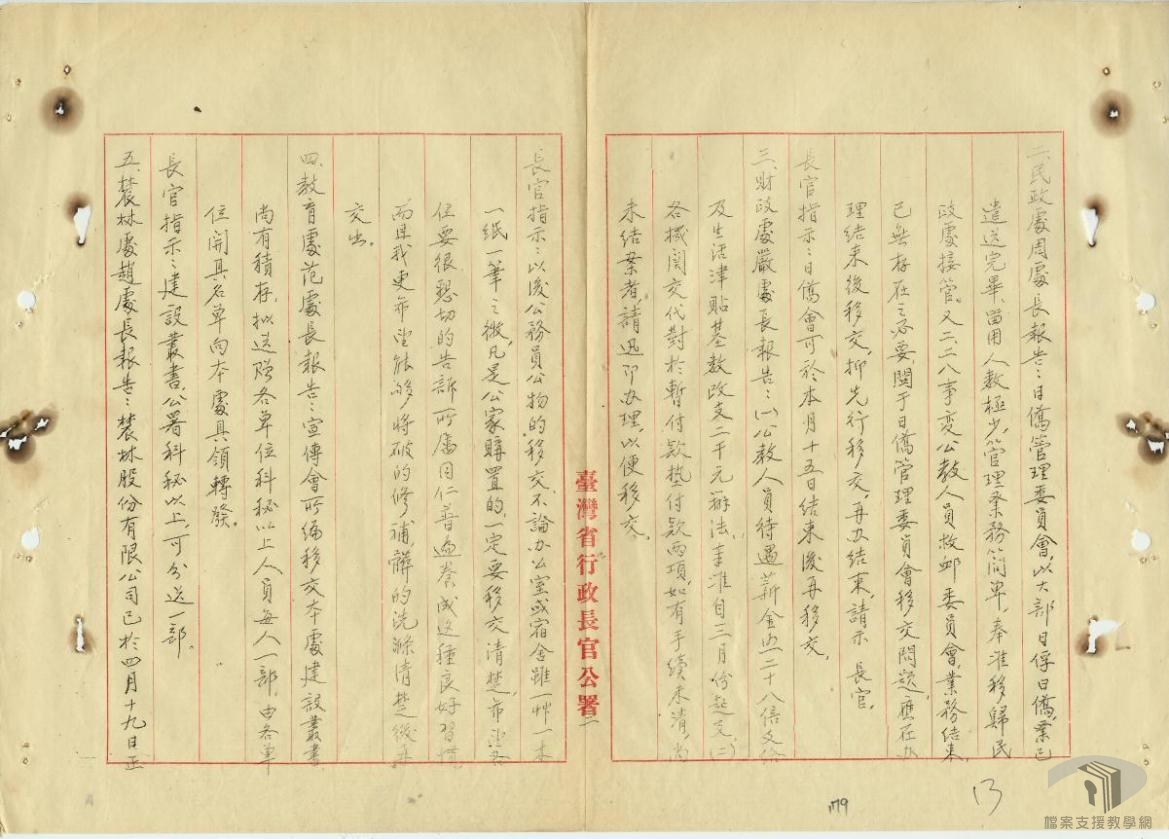 二、民政處周處長報告：日僑管理委員會，以大部日俘日僑，業已
遣送完畢，留用人數極少，管理業務簡單，奉准移歸民
政處接管。又二、二八事変公教人員救卹委員會，業務結束，
已無存在之必要，関于日僑管理委員會移交問題，應在办
理結束後移交，抑先行移交，再办結束，請示　長官。
長官指示：日僑會可於本月十五日結束後再移交。
三、財政處嚴處長報告：(一)公教人員待遇薪金照二十八倍支給
及生活津貼基数改支二千元辦法，奉准自三月份起支，(二)
各機関交代對於暫付款墊付款兩項，如有手續未清，尚
未結案者，請迅即办理，以便移交。
臺灣省行政長官公署
長官指示：以後公務員公物的移交，不論办公室或宿舍雖一艸一木
一紙一筆之微，凡是公家購置的，一定要移交清楚，希望各
位要很懇切的告訴所屬同仁普遍养成这種良好習慣
而且我更希望能够將破的修補髒的洗滌清楚後再
交出。
四、教育處范處長報告：宣傳會所编移交本處建設叢書
尚有積存，拟送贈各單位科秘以上人員每人一部，由各單
位開具名單向本處具領轉發。
長官指示：建設叢書，公署科秘以上，可分送一部。
五、農林處趙處長報告：農林股份有限公司已於四月十九日正
13
179
檔案支援教學網